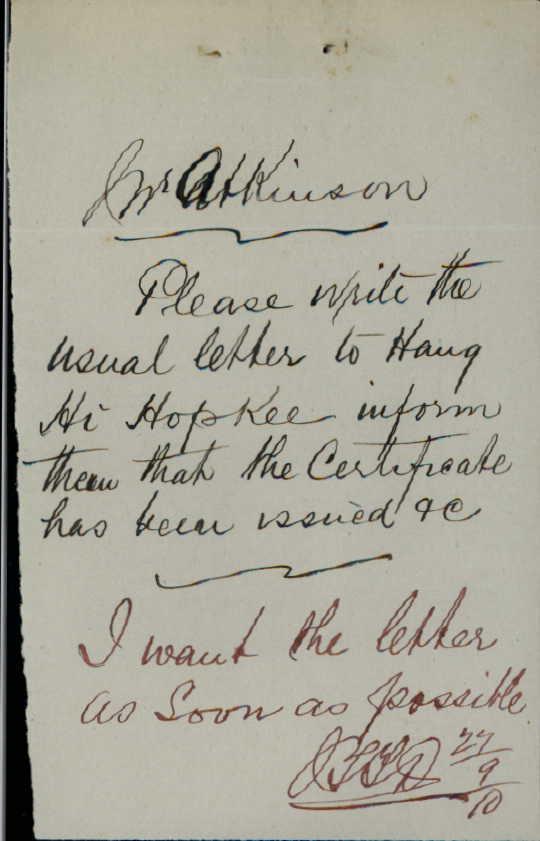 Mr Atkinson
Please write the
usual letter to Hang
Hi Hopkee inform
them that the Certificate
has been issued &c
I want the letter
as Soon as possible
27/9/10